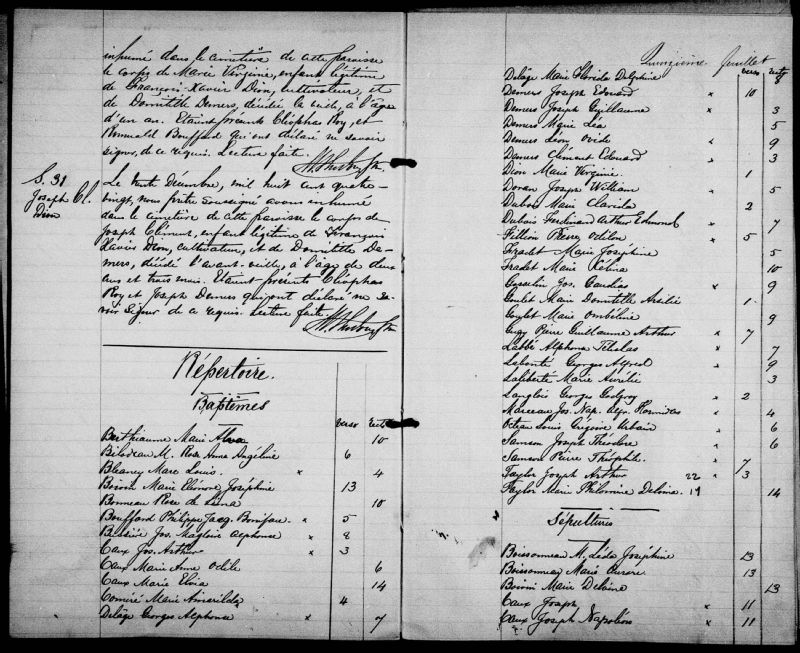 inhumé dans le cimetière de cette paroisse
le corps de Marie Virginie, enfant légitime
de François-Xavier Dion, cultivateur, et
de Domitilde Demers, décédée la veille, à l'âge
d'un an. Etaient présents Cléophas Roy, et
Romuald Bouffard qui ont déclaré ne savoir
signer, de ce requis. Lecture faite.
S. 31
Joseph Cl.
Dion
Le trente Décembre, mil huit cent quatre-
vingt, nous prêtre soussigné avons inhumé
dans le cimetière de cette paroisse le corps de
Joseph Clément, enfant légitime de François
Xavier Dion, cultivateur, et de Domitilde De-
mers, décédé l'avant-veille, à l'âge de deux
ans et trois mois. Etaient présents Cléophas
Roy et Joseph Demers qui ont déclaré ne sa-
voir signer de ce requis. Lecture faite.
Répertoire.
Baptêmes
verso recto
Berthiaume Marie 10
Bilodeau M. Rose Anna Angéline 6
Marc Louis x 4
Boivin Marie Joséphine 13
Bonneau Rose de Lima 10
Bouffard Philippe Jacq. x 5
Jos. Magloire Alphonse x 8
Caux Jos. Arthur x 3
Caux Marie Anne Odile 6
Caux Marie 14
Comiré Marie 4
Delâge Georges Alphonse x 7
Quinzième feuillet
verso recto
Delâge Marie Florida Delphine 8
Demers Joseph Edouard x 10
Demers Joseph Guillaume x 3
Demers Marie Léa 5
Demers Léon Ovide x 9
Demers Clément Edouard x 3
Dion Marie Virginie 1
Doran Joseph William x 5
Dubois Marie 2
Dubois Ferdinand Arthur Edmond x 7
Fillion Pierre Odilon x 5
Fradet Marie Joséphine 5
Fradet Marie 10
Gosselin Jos. x 9
Goulet Marie Domitilde 1
Goulet Marie Ombéline 9
Pierre Guillaume Arthur x 7
Labbé Alphonse x 7
Labonté Georges Alfred x 9
Laliberté Marie Aurélie 3
Langlois Georges Godfroy x 2
Marceau Jos. Nap. x 4
Louis Grégoire Urbain x 6
Samson Joseph Théodore x 6
Samson Pierre Théophile x 7
Taylor Joseph Arthur 22 x 3
Taylor Marie Philomène 19 14
Sépultures
Boissonneau M. Joséphine 13
Boissonneau Marie Aurore 13
Boivin Marie 13
Caux Joseph x 11
Caux Joseph Napoléon x 11